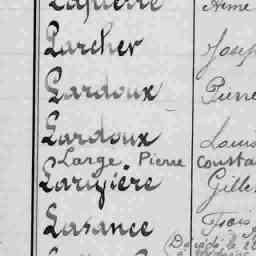 Lapierre
Larcher Josep
Lardoux Pierre
Lardoux Louis
Large. Pierre Consta
Larivière Gille
Lasance Frois